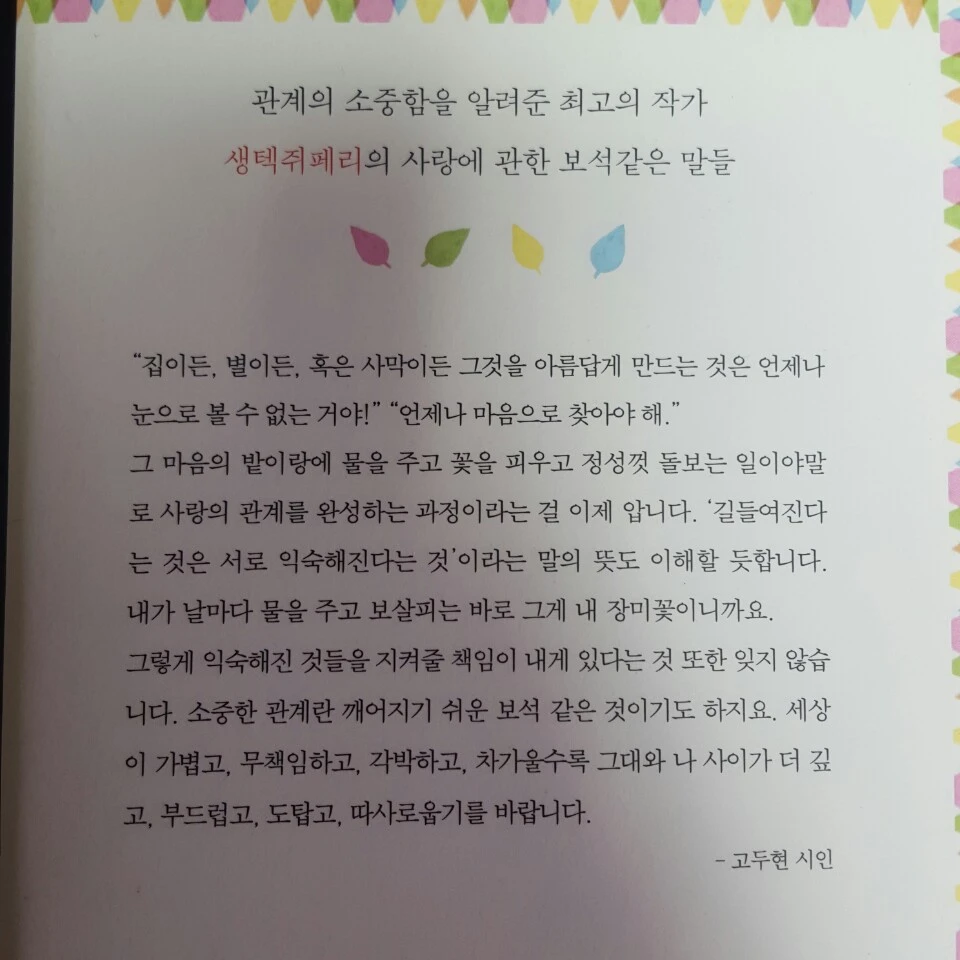 관계의 소중함을 알려준 최고의 작가
생텍쥐페리의 사랑에 관한 보석같은 말들
“집이든, 별이든, 혹은 사막이든 그것을 아름답게 만드는 것은 언제나
눈으로 볼 수 없는 거야!” “언제나 마음으로 찾아야 해.”
그 마음의 밭이랑에 물을 주고 꽃을 피우고 정성껏 돌보는 일이야말
로 사랑의 관계를 완성하는 과정이라는 걸 이제 압니다. ‘길들여진다
는 것은 서로 익숙해진다는 것’이라는 말의 뜻도 이해할 듯합니다.
내가 날마다 물을 주고 보살피는 바로 그게 내 장미꽃이니까요.
그렇게 익숙해진 것들을 지켜줄 책임이 내게 있다는 것 또한 잊지 않습
니다. 소중한 관계란 깨어지기 쉬운 보석 같은 것이기도 하지요. 세상
이 가볍고, 무책임하고, 각박하고, 차가울수록 그대와 나 사이가 더 깊
고, 부드럽고, 도탑고, 따사로웁기를 바랍니다.
- 고두현 시인